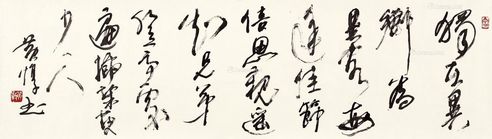 獨在異
鄉為
異客每
逢佳節
倍思親遙
知兄弟
登高處
遍插茱萸
少一人
黄惇书